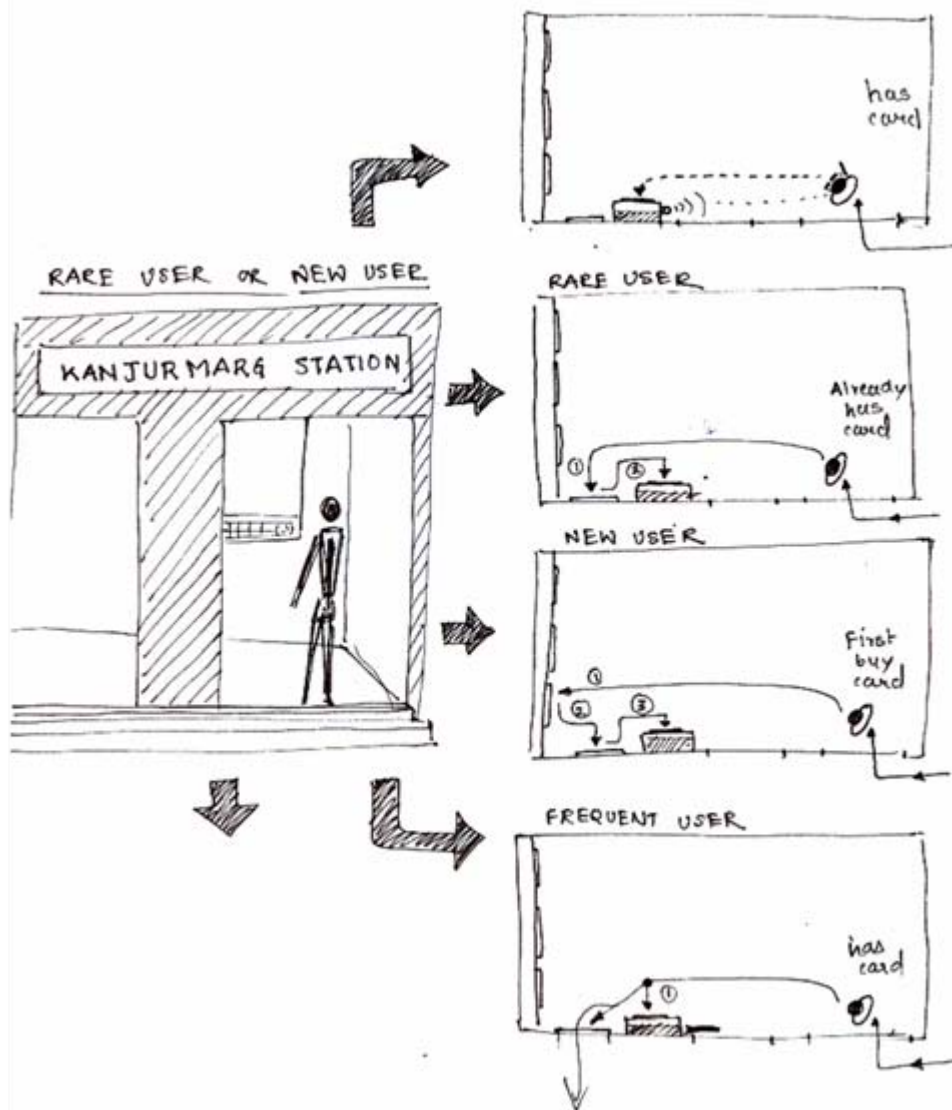 has
card
RARE USER OR NEW USER
KANJURMARG STATION
RARE USER
Already
has
card
1
2
NEW USER
First
buy
card
1
2
3
FREQUENT USER
has
card
1